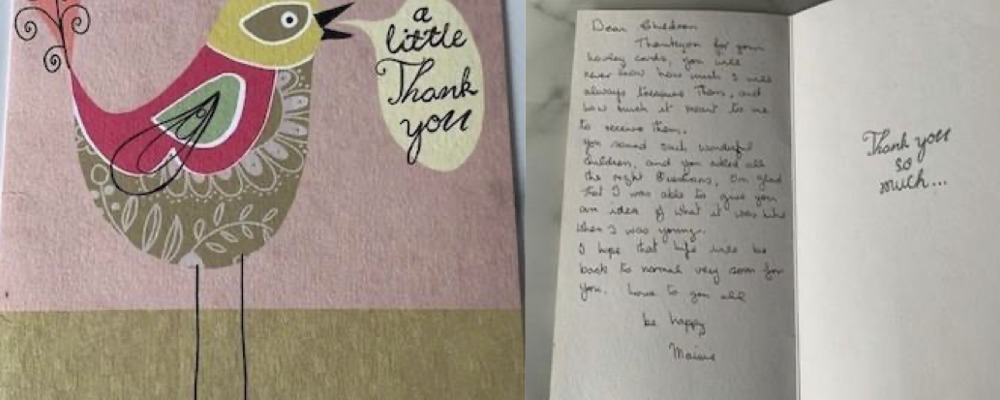 a
little
Thank
you
Dear Children
Thankyou for your
lovely cards, you will
never know how much I will
always treasure them, and
how much it meant to me
to receive them.
You sound such wonderful
Children, and you asked all
the right Questions, I'm glad
that I was able to give you
an idea of what it was like
when I was young.
I hope that life will be
back to normal very soon for
you. Love to you all
be happy
Thank you
so
much...